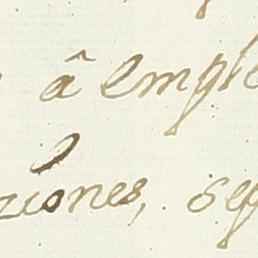 â emple
ziones, seg